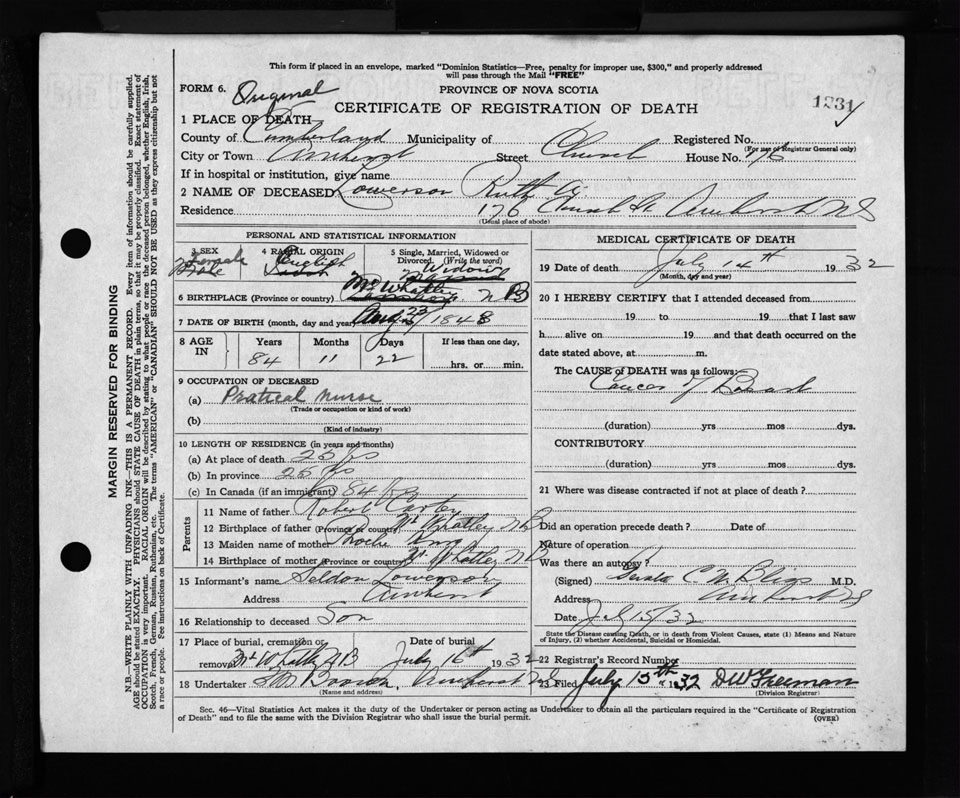 This form if placed in an envelope, marked "Dominion Statistics—Free, penalty for improper use, $300," and properly addressed
will pass through the Mail "FREE"
FORM 6. Original
PROVINCE OF NOVA SCOTIA
CERTIFICATE OF REGISTRATION OF DEATH
1231
1 PLACE OF DEATH
County of Cumberland Municipality of Registered No.
(For use of Registrar General only)
City or Town Amherst Street Church House No. 176
If in hospital or institution, give name
2 NAME OF DECEASED Lowerson Ruth A.
Residence 176 Church St Amherst N S
(Usual place of abode)
PERSONAL AND STATISTICAL INFORMATION
3 SEX Female
4 RACIAL ORIGIN English
5 Single, Married, Widowed or Divorced. (Write the word) Widow
6 BIRTHPLACE (Province or country) Mt Whatley N B
7 DATE OF BIRTH (month, day and year) Aug 23 / 1848
8 AGE IN Years Months Days If less than one day,
84 11 22 hrs. or min.
9 OCCUPATION OF DECEASED
(a) Pratical Nurse
(Trade or occupation or kind of work)
(b)
(Kind of industry)
10 LENGTH OF RESIDENCE (in years and months)
(a) At place of death 25 yrs
(b) In province 25 yrs
(c) In Canada (if an immigrant) 84
Parents
11 Name of father Robert Carter
12 Birthplace of father (Province or country) Mt Whatley N B
13 Maiden name of mother Phoebe
14 Birthplace of mother (Province or country) Mt. Whatley N B
15 Informant's name Seldon Lowerson
Address Amherst
16 Relationship to deceased Son
17 Place of burial, cremation or removal Mt Whatley N B Date of burial July 16th 1932
18 Undertaker Amherst N S
(Name and address)
MEDICAL CERTIFICATE OF DEATH
19 Date of death July 14th 1932
(Month, day and year)
20 I HEREBY CERTIFY that I attended deceased from
19 to 19 that I last saw
h alive on 19 and that death occurred on the
date stated above, at m.
The CAUSE of DEATH was as follows:
Cancer of Breast
(duration) yrs mos dys.
CONTRIBUTORY
(duration) yrs mos dys.
21 Where was disease contracted if not at place of death?
Did an operation precede death? Date of
Nature of operation
Was there an autopsy?
(Signed) C. W. Bliss M.D.
Address Amherst N S
Date July 15/32
State the Disease causing Death, or in death from Violent Causes, state (1) Means and Nature
of Injury, (2) whether Accidental, Suicidal or Homicidal.
22 Registrar's Record Number
23 Filed July 15th 1932 D W Freeman
(Division Registrar)
Sec. 46—Vital Statistics Act makes it the duty of the Undertaker or person acting as Undertaker to obtain all the particulars required in the "Certificate of Registration
of Death" and to file the same with the Division Registrar who shall issue the burial permit.
(OVER)
MARGIN RESERVED FOR BINDING
N.B.—WRITE PLAINLY WITH UNFADING INK—THIS IS A PERMANENT RECORD. Every item of information should be carefully supplied.
AGE should be stated EXACTLY. PHYSICIANS should STATE CAUSE OF DEATH in plain terms, so that it may be properly classified. Exact statement of
OCCUPATION is very important. RACIAL ORIGIN will be described by stating to what people or race the deceased person belonged, whether English, Irish,
Scotch, French, German, Russian, Ruthenian, etc. The terms "AMERICAN" or "CANADIAN" SHOULD NOT BE USED as they express citizenship but not
a race or people. See instructions on back of Certificate.